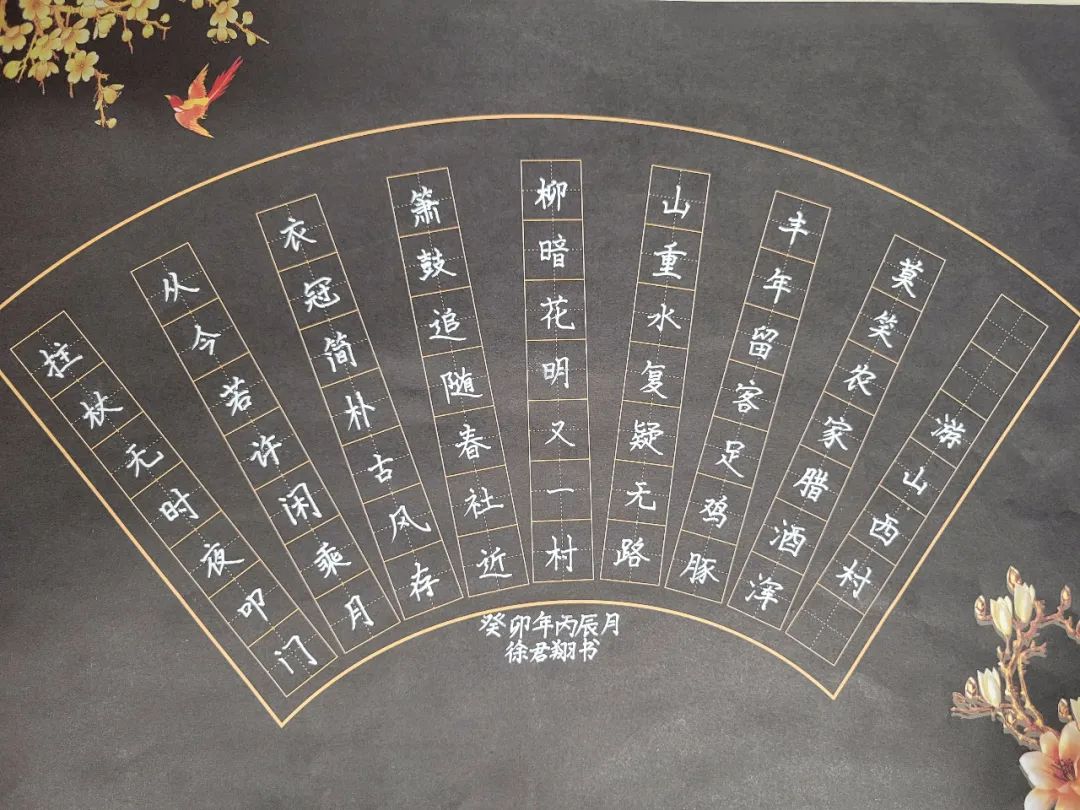 游山西村
莫笑农家腊酒浑
丰年留客足鸡豚
山重水复疑无路
柳暗花明又一村
箫鼓追随春社近
衣冠简朴古风存
从今若许闲乘月
拄杖无时夜叩门
癸卯年丙辰月
徐君翔书